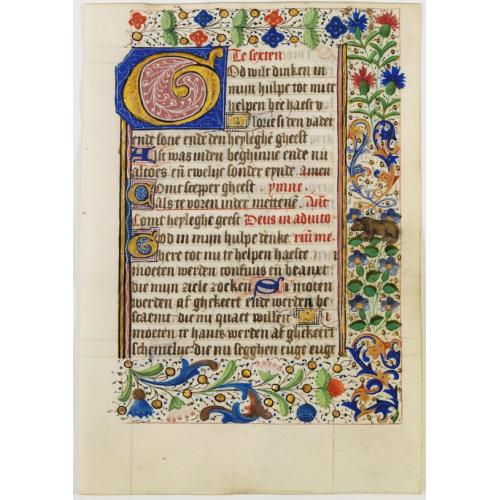 Te sexten
God wilt dinken in
mijn hulpe tot mi te
helpen hee haest v
Glorie si den vader
ende sone ende den heyleghe gheest
Als't was inden beghinne ende nu
altoes en ewelije sonder eynde. amen
Comt scepper gheest Ymne.
Als te voren inder mettene. Ant
Comt heyleghe geest Deus in adiuto
God in mijn hulpe denke rium me
here tot mi te helpen haeste
moeten werden confuus en beanxt
die mijn ziele zoeken Si moten
werden af ghekeert ende werden be
scaemt die mi quaet willen Si
moeten te hants werden af ghekeert
schemeluc die mi segghen euge euge